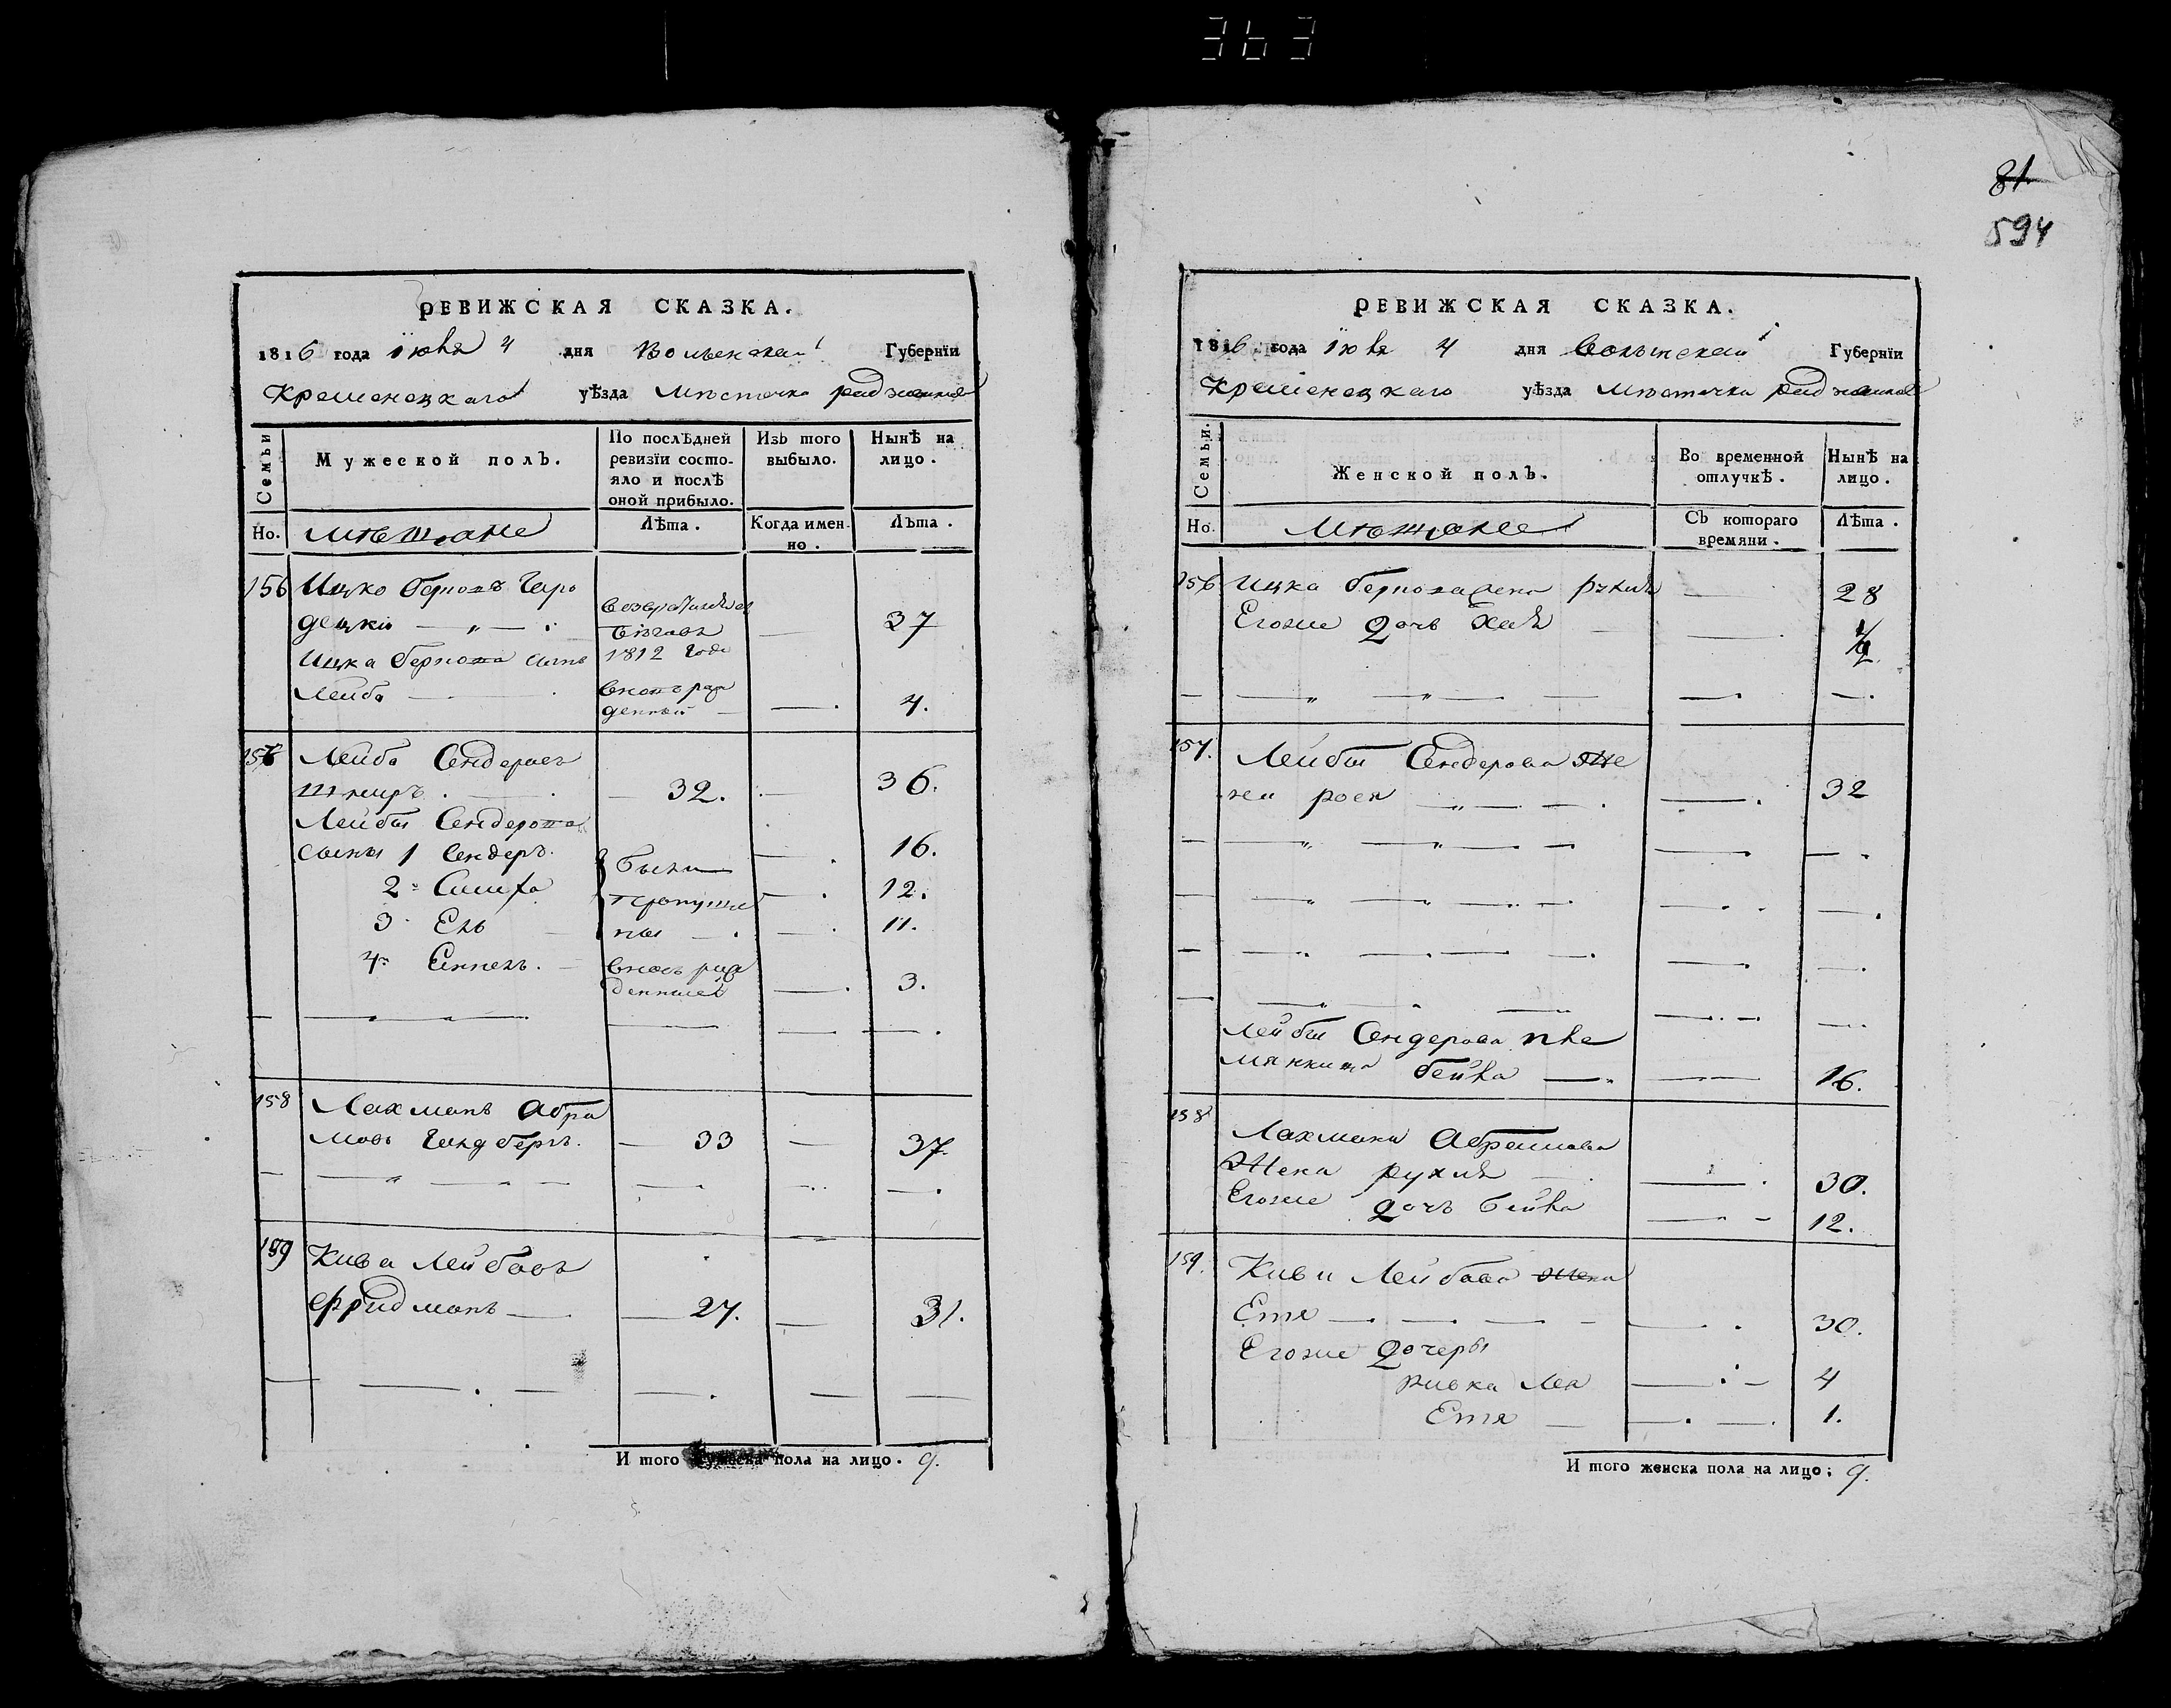 363
81
594
РЕВИЖСКАЯ СКАЗКА.
1816 года іюня 4 дня Волынской Губерніи
Кременецкаго уѣзда Мѣстечка
Семьи
Мужеской полъ.
По послѣдней ревизіи состо-
яло и послѣ
оной прибыло.
Изъ того
выбыло.
Нынѣ на
лицо.
Но.
мѣщане
Лѣта.
Когда имен-
но.
Лѣта.
156 Ицко Берковъ Горо
децки 37
1812 года
Ицка Беркова сынъ
Лейба
вновь рож
денный 4.
157 Лейба Сендеровъ
32. 36.
Лейбы Сендерова
сыны 1 Сендеръ 16.
2 Симха были 12.
3 Ель пропуще
ны 11.
4 вновь рож
денные 3.
158 Лахманъ Абра
мовъ Голдберъ. 33 37.
159 Кива Лейбовъ
Фридманъ 27. 31.
И того мужеска пола на лицо. 9.
РЕВИЖСКАЯ СКАЗКА.
1816 года іюня 4 дня Волынской Губерніи
Кременецкаго уѣзда Мѣстечка
Семьи.
Женской полъ.
Во временной
отлучкѣ.
Нынѣ на
лицо.
Но.
Мѣщане
Съ котораго
времяни.
Лѣта.
156 Ицка Беркова жена Рухля 28
Егоже дочь Хая 1/2
157. Лейбы Сендерова же
на Рося 32
Лейбы Сендерова пле
мянница Бейла 16.
158 Лахмана Абрамова
Жена Рухля 30.
Егоже дочь Бейла 12.
159. Кивы Лейбова жена
Етя 30.
Егоже дочеры
Ривка Лея 4
Етя 1.
И того женска пола на лицо; 9.